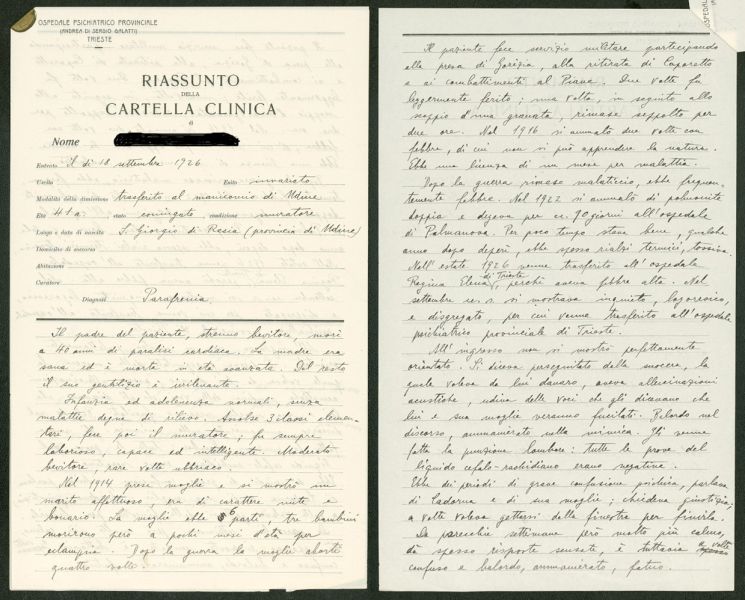 OSPEDALE PSICHIATRICO PROVINCIALE
(ANDREA DI SERGIO GALATTI)
TRIESTE
RIASSUNTO
DELLA
CARTELLA CLINICA
di
Nome
Entrato il dì 18 settembre 1926
Uscito Esito invariato
Modalità della dimissione trasferito al manicomio di Udine
Età 41 a. stato coniugato condizione muratore
Luogo e data di nascita S. Giorgio di Resia (provincia di Udine)
Domicilio di soccorso
Abitazione
Curatore
Diagnosi Parafrenia.
Il padre del paziente, strenuo bevitore, morì
a 40 anni di paralisi cardiaca. La madre era
sana ed è morta in età avanzata. Del resto
il suo gentilizio è irrilevante.
Infanzia ed adolescenza normali, senza
malattie degne di rilievo. Assolse 3 classi elemen-
tari, fece poi il muratore; fu sempre
laborioso, capace ed intelligente. Moderato
bevitore; rare volte ubbriaco.
Nel 1914 prese moglie e si mostrò un
marito affettuoso era di carattere mite e
bonario. La moglie ebbe 6 parti, tre bambini
morirono però a pochi mesi d'età per
eclampsia. Dopo la guerra la moglie abortì
quattro volte.
Il paziente fece servizio militare partecipando
alla presa di Gorizia, alla ritirata di Caporetto
e ai combattimenti al Piave. Due volte fu
leggermente ferito; una volta, in seguito allo
scoppio d'una granata, rimase sepolto per
due ore. Nel 1916 si ammalò due volte con
febbre, di cui non si può apprendere la natura.
Ebbe una licenza di un mese per malattia.
Dopo la guerra rimase malaticcio, ebbe frequen-
temente febbre. Nel 1922 si ammalò di polmonite
doppia e degeva per ca. 90 giorni all'ospedale
di Palmanova. Per poco tempo stava bene, qualche
anno dopo deperì, ebbe spesso rialzi termici, tossiva.
Nell'estate 1926 venne trasferito all'ospedale
Regina Elena di Trieste, perchè aveva febbre alta. Nel
settembre si mostrava inquieto, logorroico,
e disgregato, per cui venne trasferito all'ospedale
psichiatrico provinciale di Trieste.
All'ingresso non si mostrò perfettamente
orientato. Si diceva perseguitato dalla suocera, la
quale voleva da lui danaro, aveva allucinazioni
acustiche, udiva delle voci che gli dicevano che
lui e sua moglie verranno fucilati. Balordo nel
discorso, ammanierato nella mimica. Gli venne
fatta la punzione lombare: tutte le prove del
liquido cefalo-rachidiano erano negative.
Ebbe dei periodi di grave confusione psichica, parlava
di Cadorna e di sua moglie; chiedeva giustizia;
a volte voleva gettarsi della finestra per finirla.
Da parecchie settimane però molto più calmo,
dà spesso risposte sensate, è tuttavia a volte
confuso e balordo, ammanierato, fatuo.